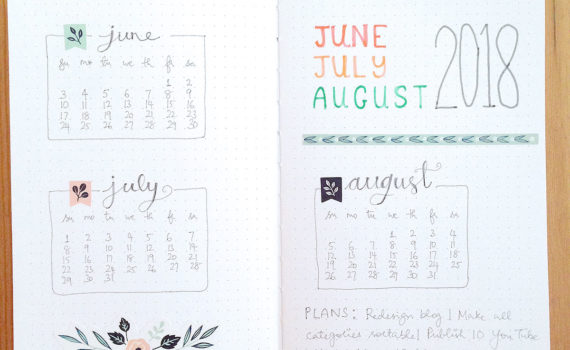 june
su mo tu we th fr sa
1 2
3 4 5 6 7 8 9
10 11 12 13 14 15 16
17 18 19 20 21 22 23
24 25 26 27 28 29 30
july
su mo tu we th fr sa
1 2 3 4 5 6 7
8 9 10 11 12 13 14
15 16 17 18 19 20 21
22 23 24 25 26 27 28
29 30 31
JUNE
JULY
AUGUST
2018
august
su mo tu we th fr sa
1 2 3 4
5 6 7 8 9 10 11
12 13 14 15 16 17 18
19 20 21 22 23 24 25
26 27 28 29 30 31
PLANS: Redesign blog | Make all
categories sortable | Publish 10 YouTube